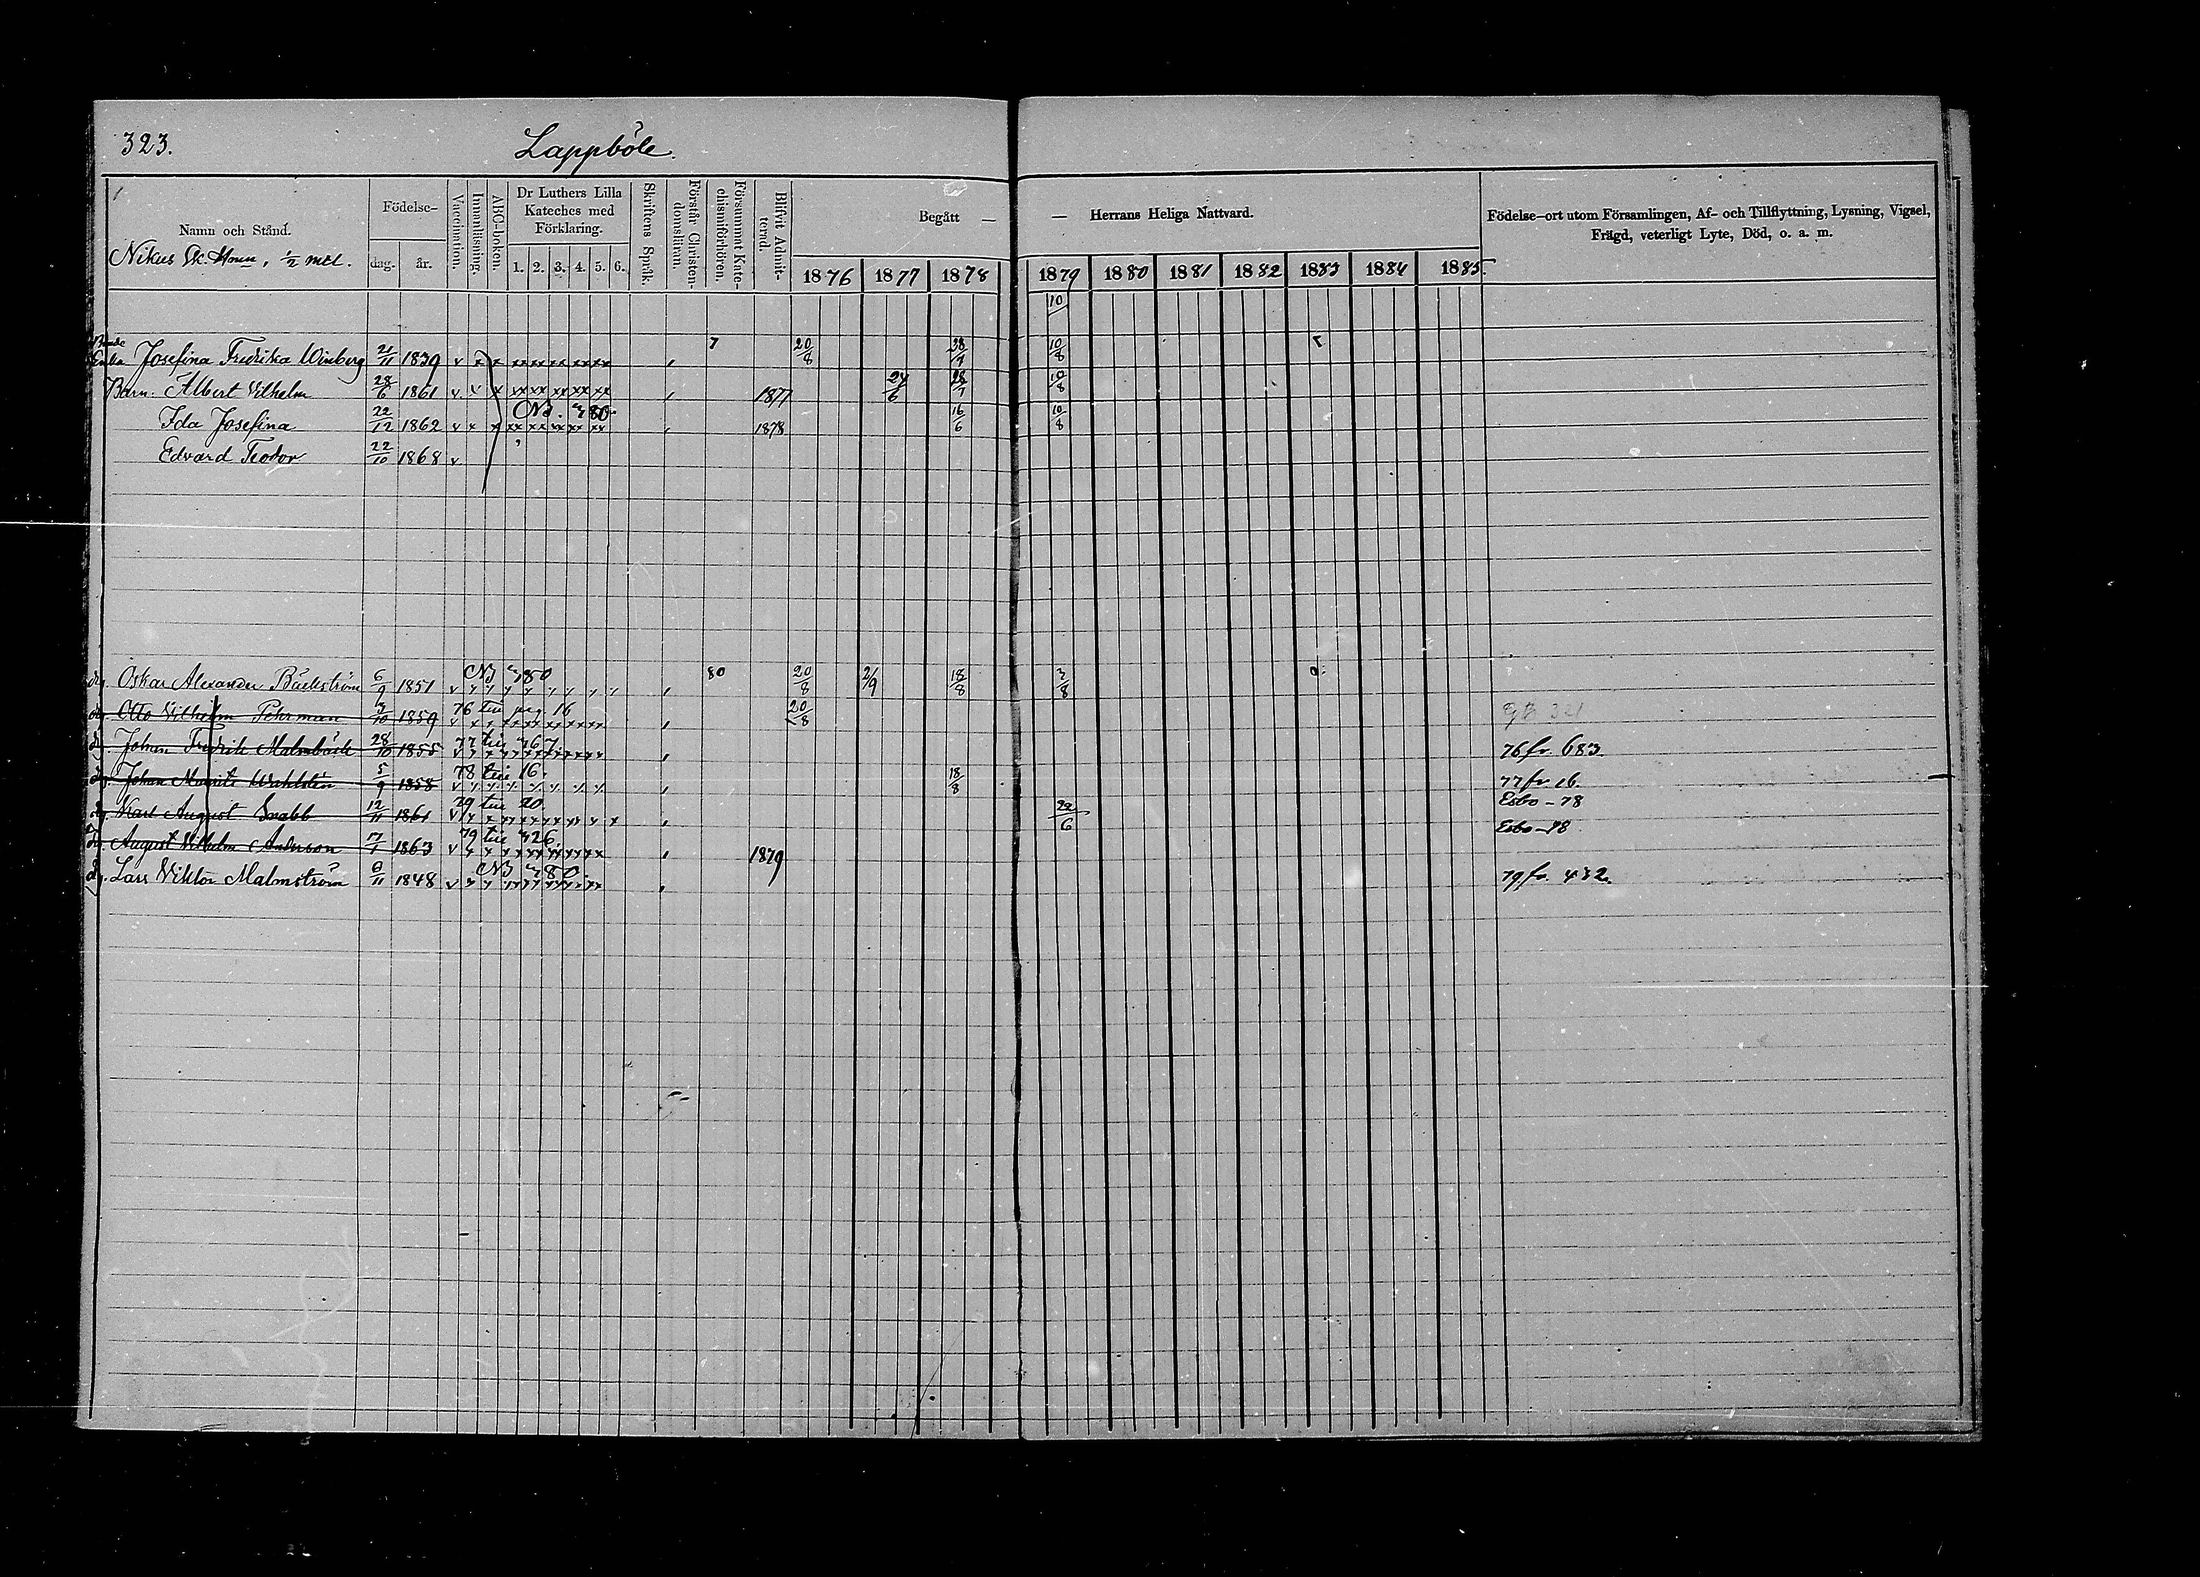 323. Lappböle.
Namn och Stånd.
Nikus Sk. Hem, 1/2 mtl.
Födelse-
dag. år.
Vaccination.
Innanläsning.
ABC-boken.
Dr Luthers Lilla Kateches med Förklaring.
1. 2. 3. 4. 5. 6.
Skriftens Språk.
Förstår Christendomsläran.
Försummat Katechismiförhören.
Blifvit Admitterad.
Begått — — Herrans Heliga Nattvard.
1876 1877 1878 1879 1880 1881 1882 1883 1884 1885
Födelse-ort utom Församlingen, Af- och Tillflyttning, Lysning, Vigsel,
Frägd, veterligt Lyte, Död, o. a. m.
10
Bonde
Enka Josefina Fredrika Winberg 21/11 1839 v x x xx xx xx xx xx 7 20/8 28/7 10/8
Barn. Albert Vilhelm 28/6 1861 v v x xx xx xx xx xx 1877 24/6 28/7 10/8
Ida Josefina 22/12 1862 v x x xx xx xx xx xx 1878 16/6 10/8
Edvard Teodor 22/10 1868 v
drg. Oskar Alexander Bäckström 6/9 1851 v 80 20/8 2/9 18/8 3/8
drg. Otto Vilhelm Pehrman 3/10 1859 76 till pag. 16 20/8
drg. Johan Fredrik Malmbäck 28/10 1855 76 fr. 683.
drg. Johan Mauritz Wahlstén 5/9 1858 78 till 16. 18/8 77 fr. 16.
drg. Karl August Snabb 12/11 1861 79 till 20. 22/6 Esbo - 78
drg. August Vilhelm Anderson 17/7 1863 1879 Esbo - 78
drg. Lars Viktor Malmström 6/11 1848 79 fr. 432.